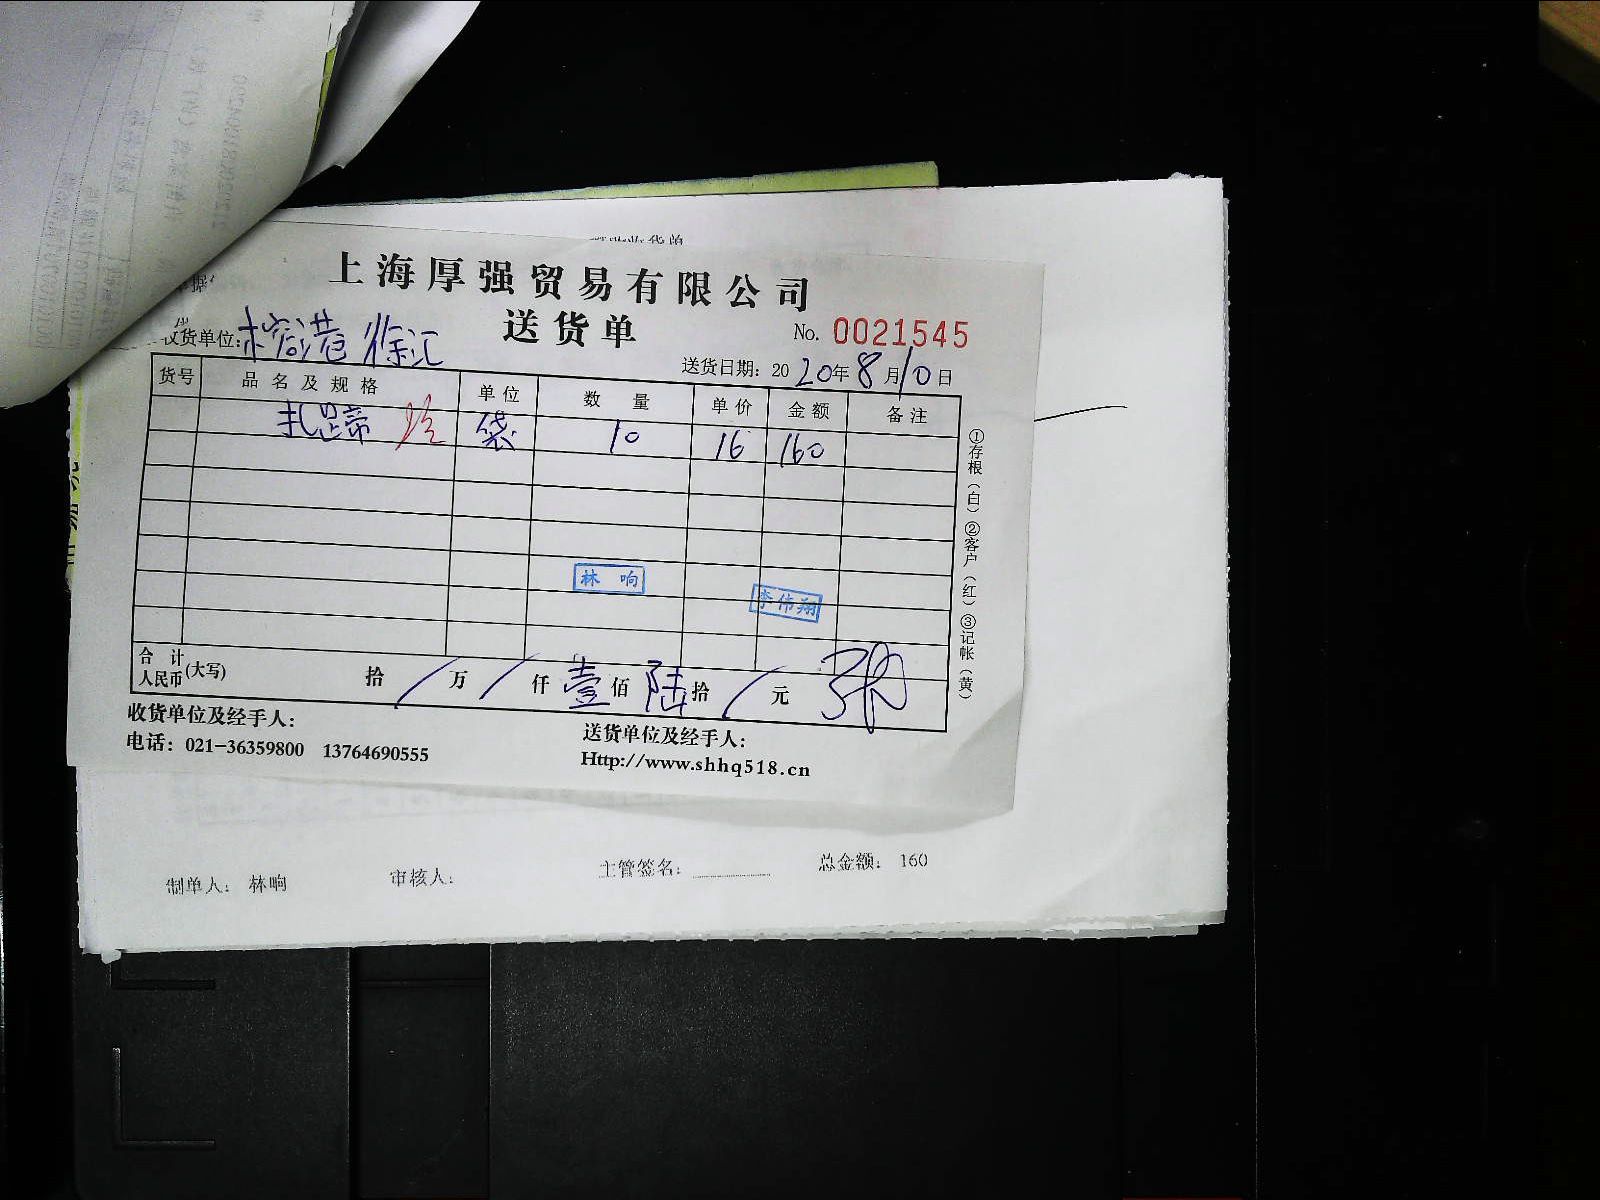 上海厚强贸易有限公司
送货单
No. 0021545
收货单位: 榕港 徐汇
送货日期: 2020年8月10日
货号 品名及规格 单位 数量 单价 金额 备注
扎蹄 袋 10 16 160
林响
李伟翔
合计人民币(大写) 拾/万/仟壹佰陆拾/元
①存根(白)②客户(红)③记帐(黄)
收货单位及经手人:
送货单位及经手人:
电话: 021-36359800 13764690555
Http://www.shhq518.cn
制单人: 林响 审核人: 主管签名: 总金额: 160